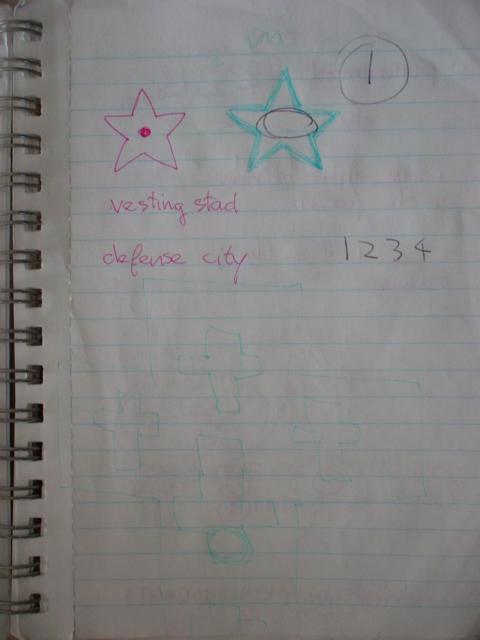 1
vesting stad
defense city
1 2 3 4